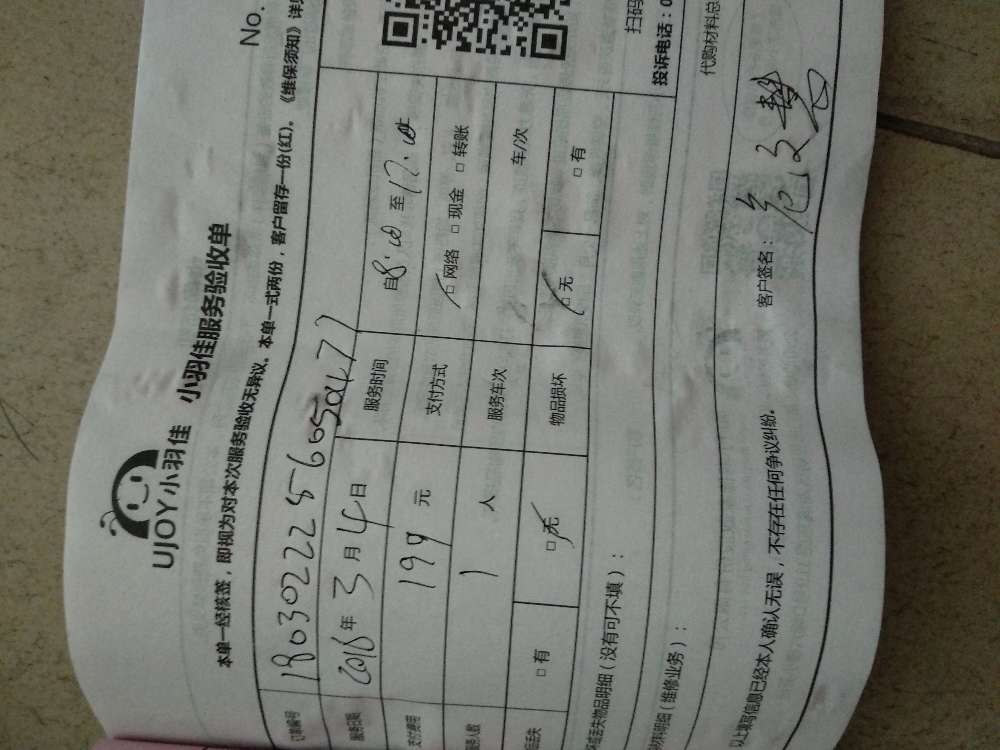 UJOY小羽佳 小羽佳服务验收单
No.
本单一经核签，即视为对本次服务验收无异议。本单一式两份，客户留存一份(红)。《维保须知》详
订单编号
服务日期 年 3 月 4 日 服务时间 自8:00 至 17:00
支付费用 199 元 支付方式 □ 网络 □ 现金 □ 转账
人数 1 人 服务车次 车/次
丢失 □ 有 □ 无 物品损坏 □ 无 □ 有
丢失物品明细（没有可不填）：
明细（维修业务）：
扫码
投诉电话：0
代购材料总
以上填写信息已经本人确认无误，不存在任何争议纠纷。 客户签名：